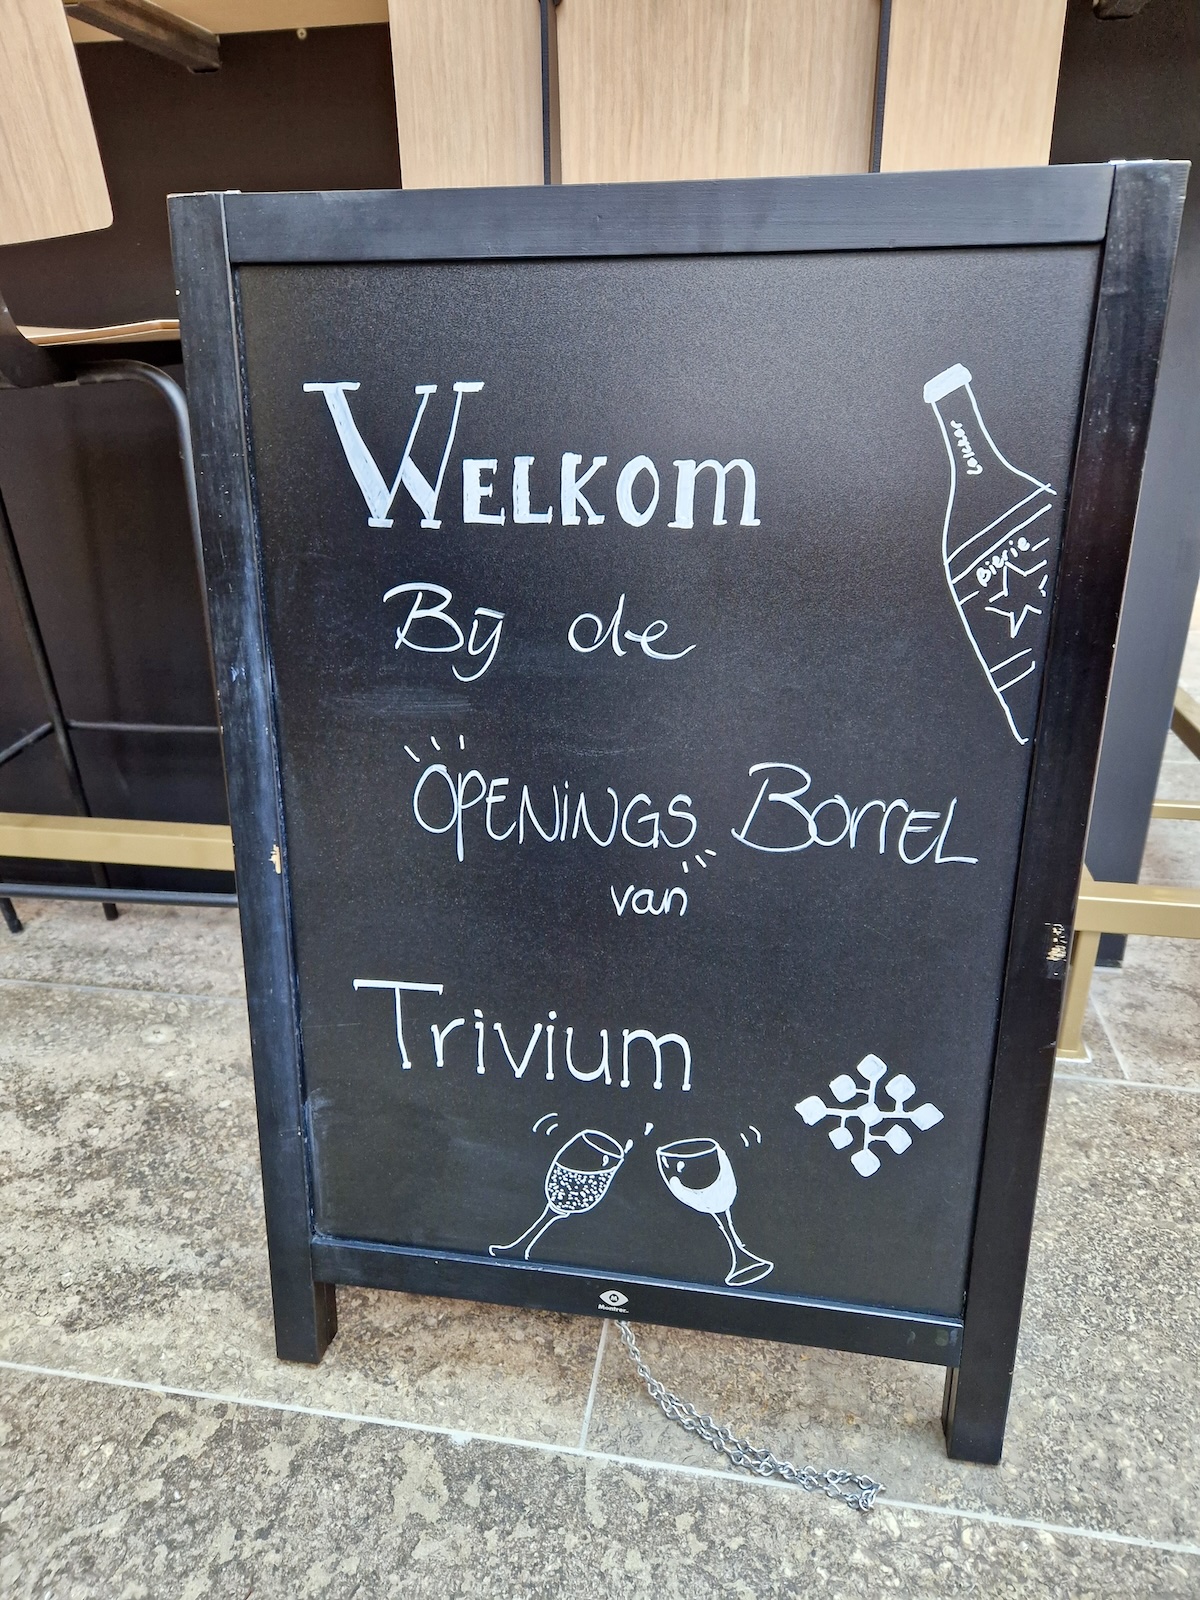 WELKOM
Bij de
OPENINGS BORREL
van
Trivium
Lekker
Bierie
M
Montrez